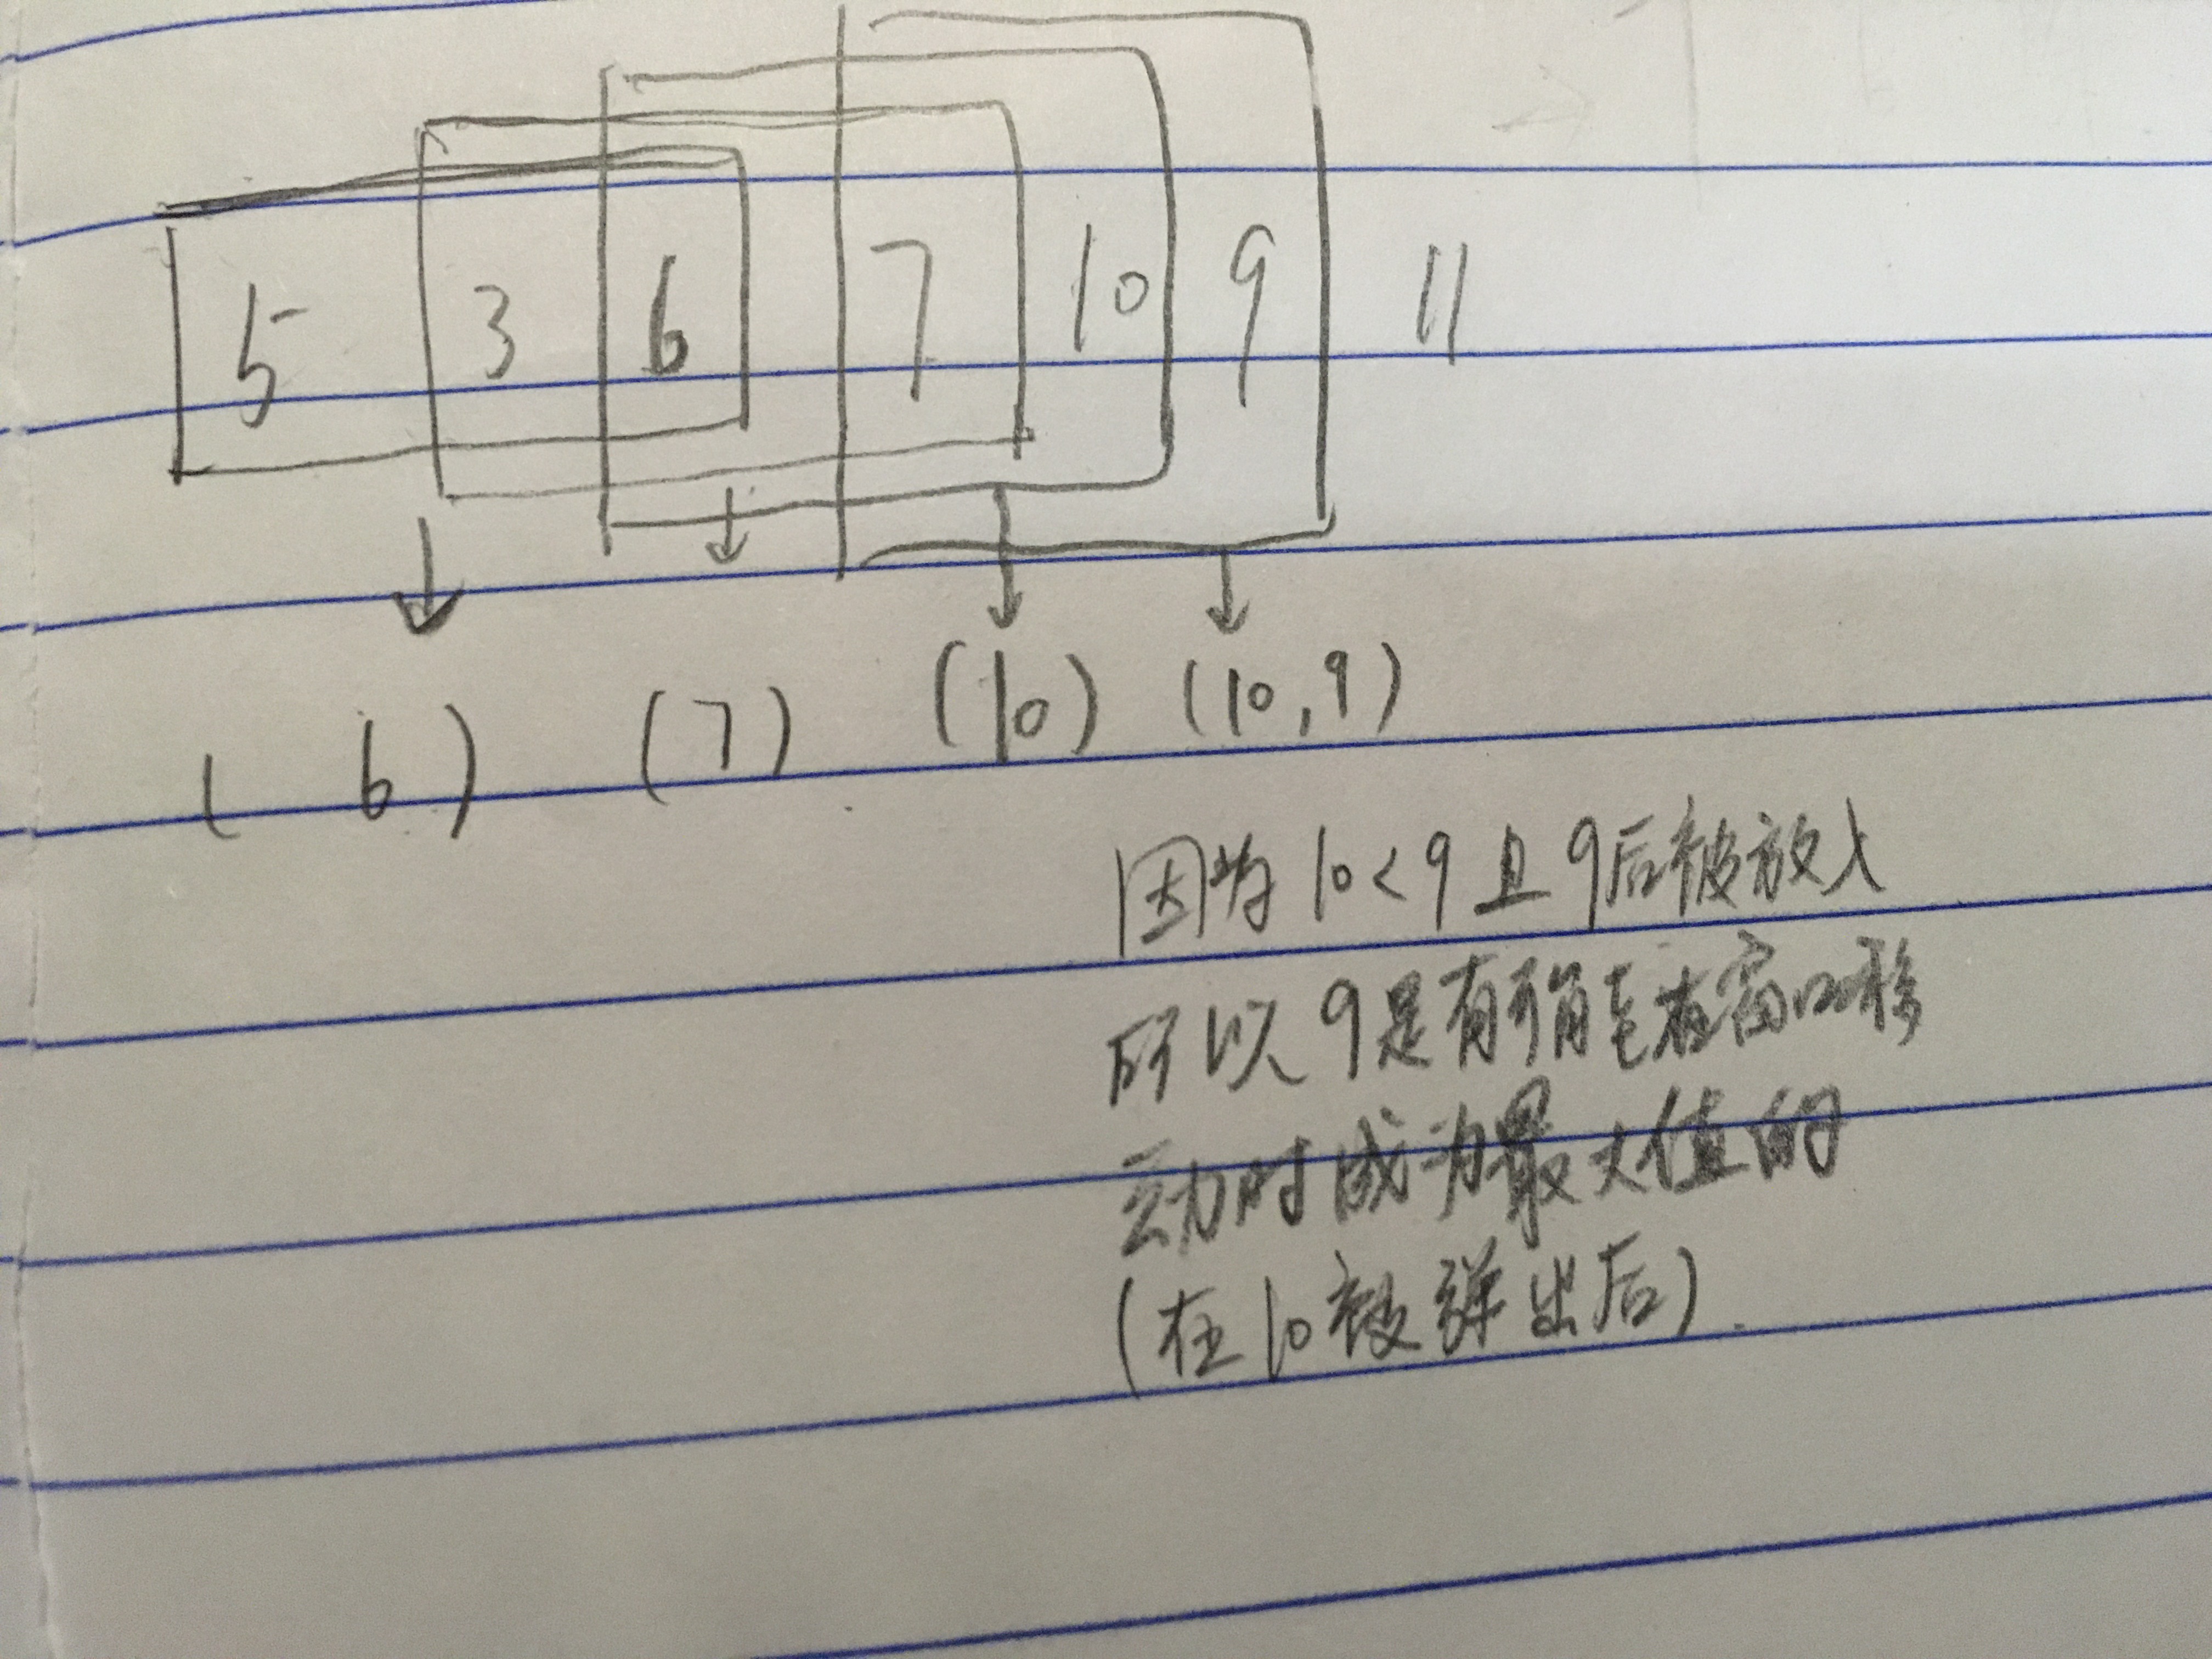 5 3 6 7 10 9 11
( 6 ) (7) (10) (10,9)
因为10<9且9后被放入
所以9是有可能在窗口移
动时成为最大值的
(在10被弹出后).